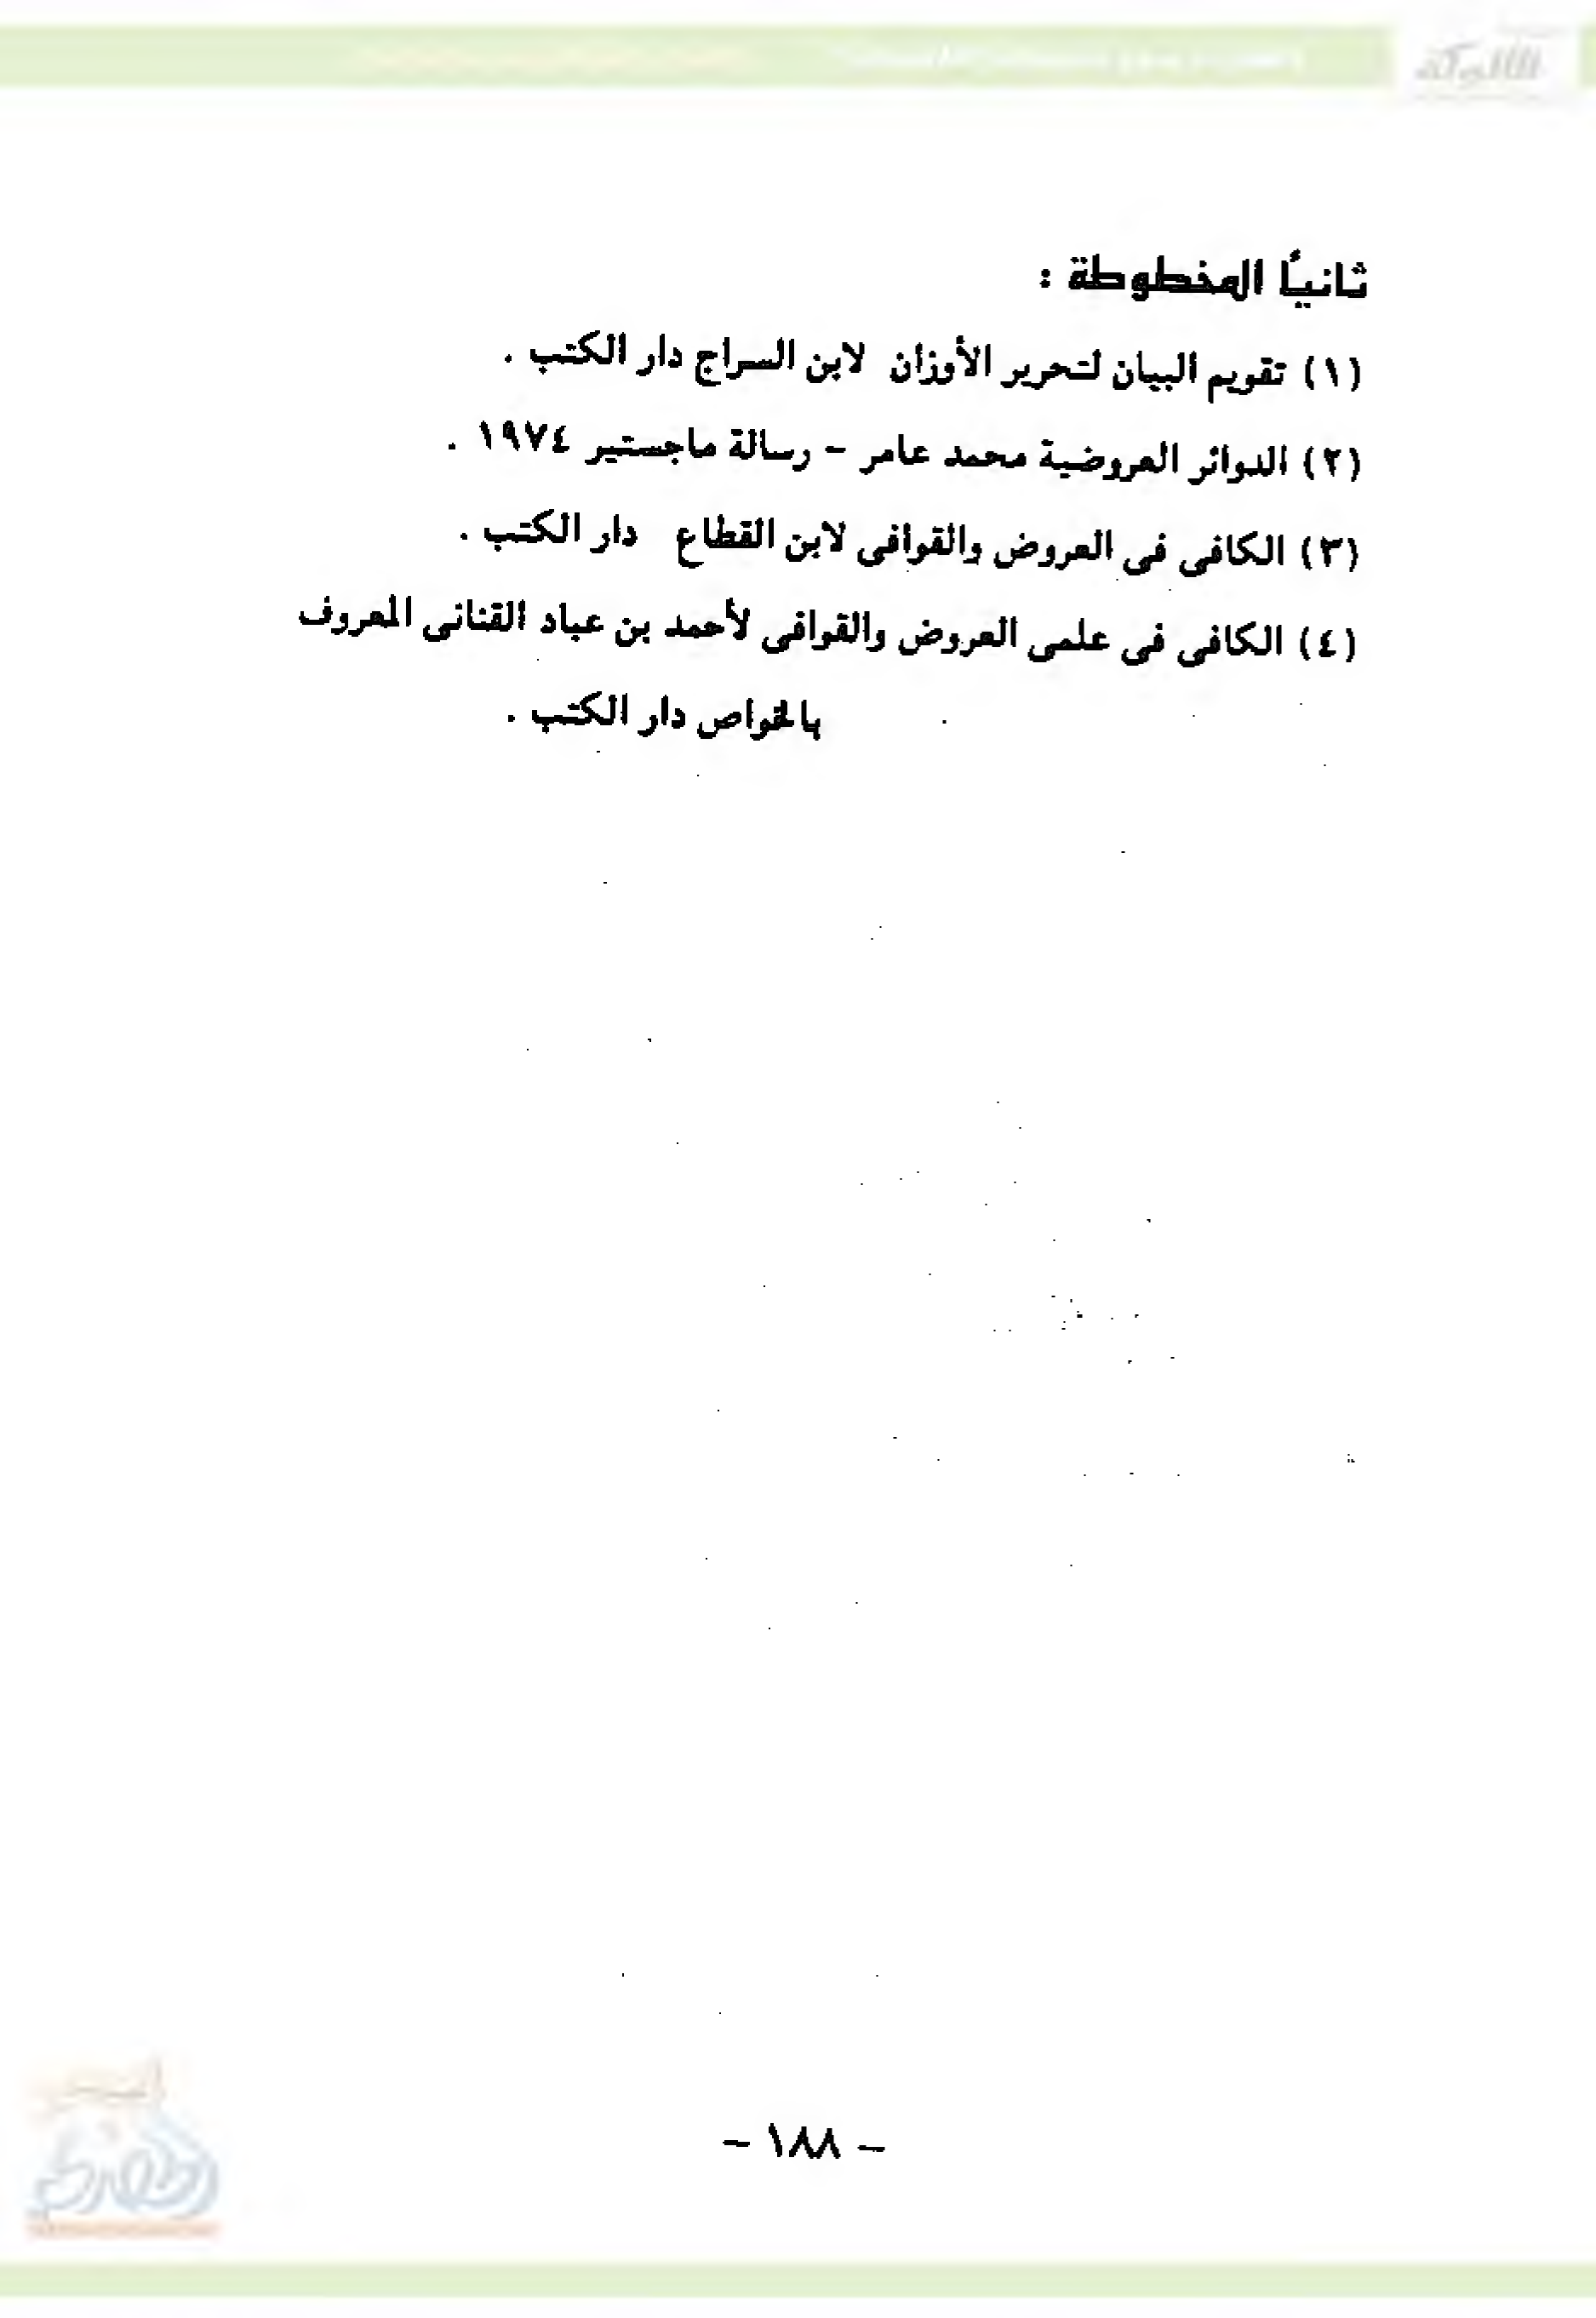 الألوكة
ثانيًا المخطوطة :
(١) تقويم البيان لتحرير الأوزان لابن السراج دار الكتب .
(٢) الدوائر العروضية محمد عامر – رسالة ماجستير ١٩٧٤ .
(٣) الكافى فى العروض والقوافى لابن القطاع دار الكتب .
(٤) الكافى فى علمى العروض والقوافى لأحمد بن عباد القنائى المعروف
بالخواص دار الكتب .
– ١٨٨ –